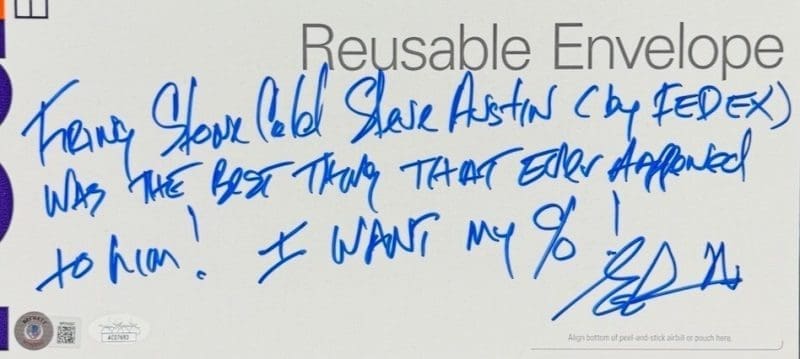 Reusable Envelope
Firing Stone Cold Steve Austin (by FEDEX)
WAS THE BEST Thing THAT Ever Happened
to him! I WANT my % !
BECKETT
AC07693
Align bottom of peel-and-stick airbill or pouch here.